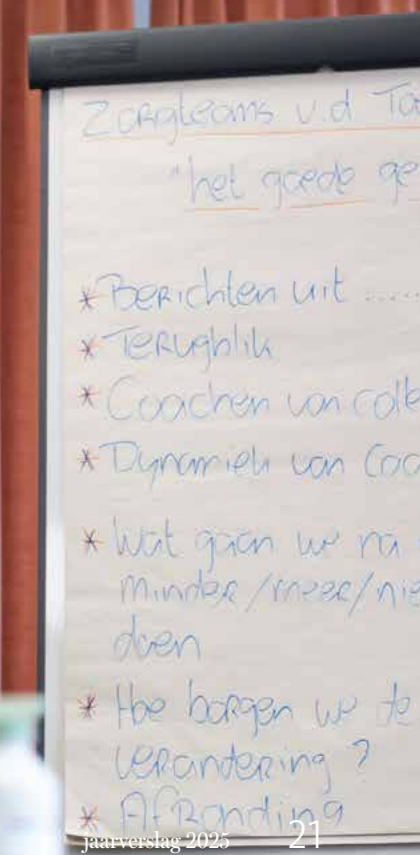 Zorgteams v.d To
"het goede ge
* Berichten uit .....
* Terugblik
* Coachen van colle
* Dynamiek van Coa
* Wat gaan we na
minder/meer/nie
doen
* Hoe borgen we de
verandering ?
* Afronding
jaarverslag 2025 21